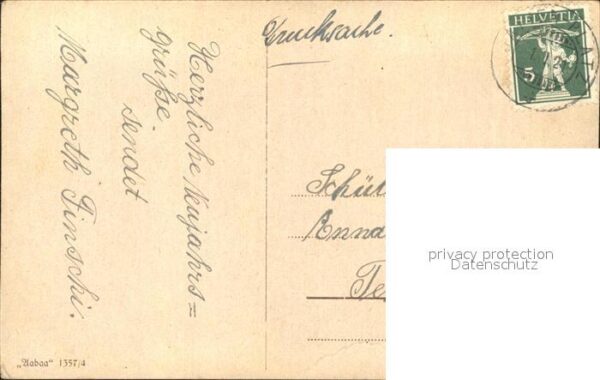 Drucksache.
HELVETIA
5
Herzliche Neujahrs=
grüße.
sendet
Margreth Tinschi.
Schü
Anna
Te
privacy protection
Datenschutz
„Aabaa" 1357/4